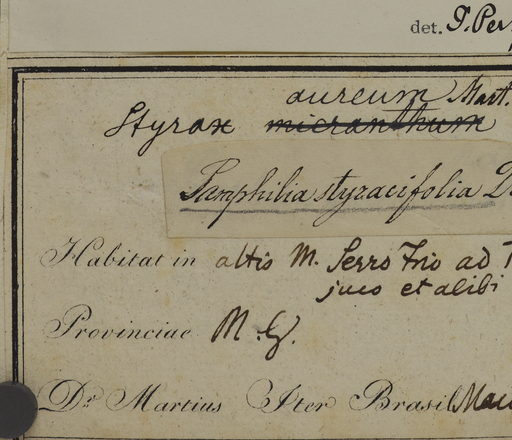 det. J. Per
aureum Mart.
Styrax micranthum
Pamphilia styracifolia D
Habitat in altis M. Serro Frio ad T
juco et alibi
Provinciae M. G.
Dr. Martius Iter Brasil. Mai